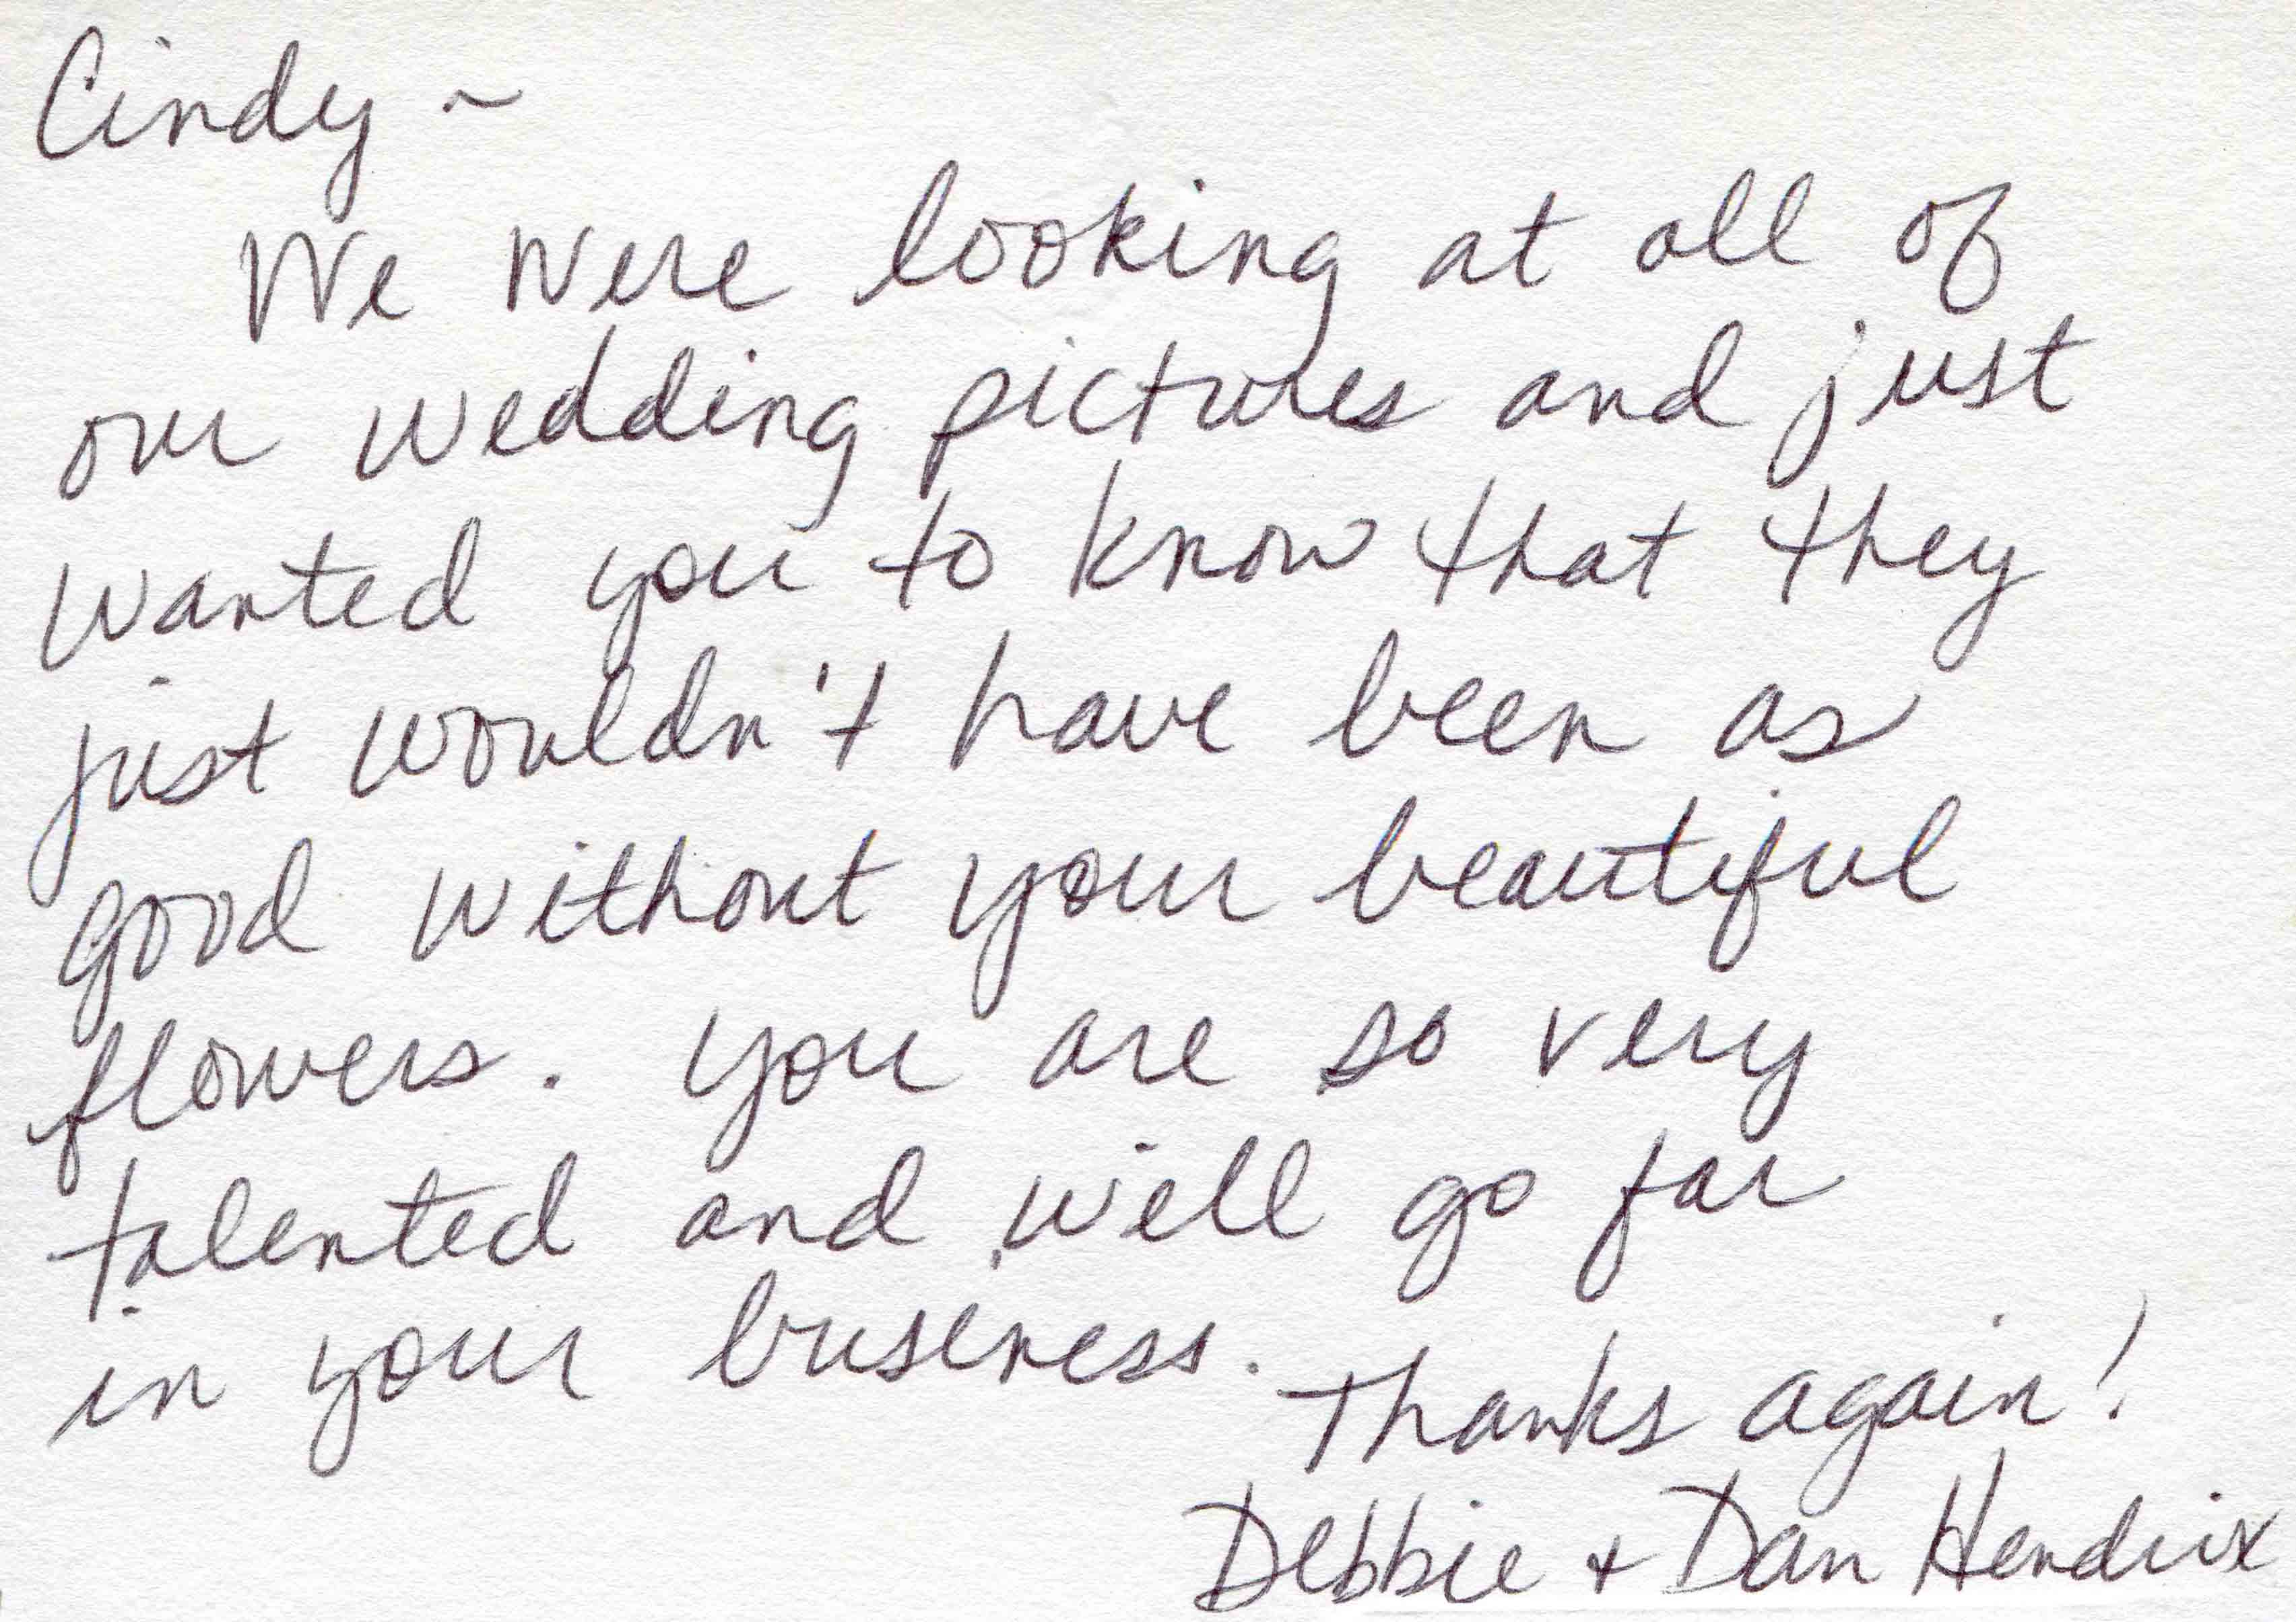 Cindy ~
We were looking at all of
our wedding pictures and just
wanted you to know that they
just wouldn't have been as
good without your beautiful
flowers. You are so very
talented and will go far
in your business.
Thanks again!
Debbie + Dan Hendrix